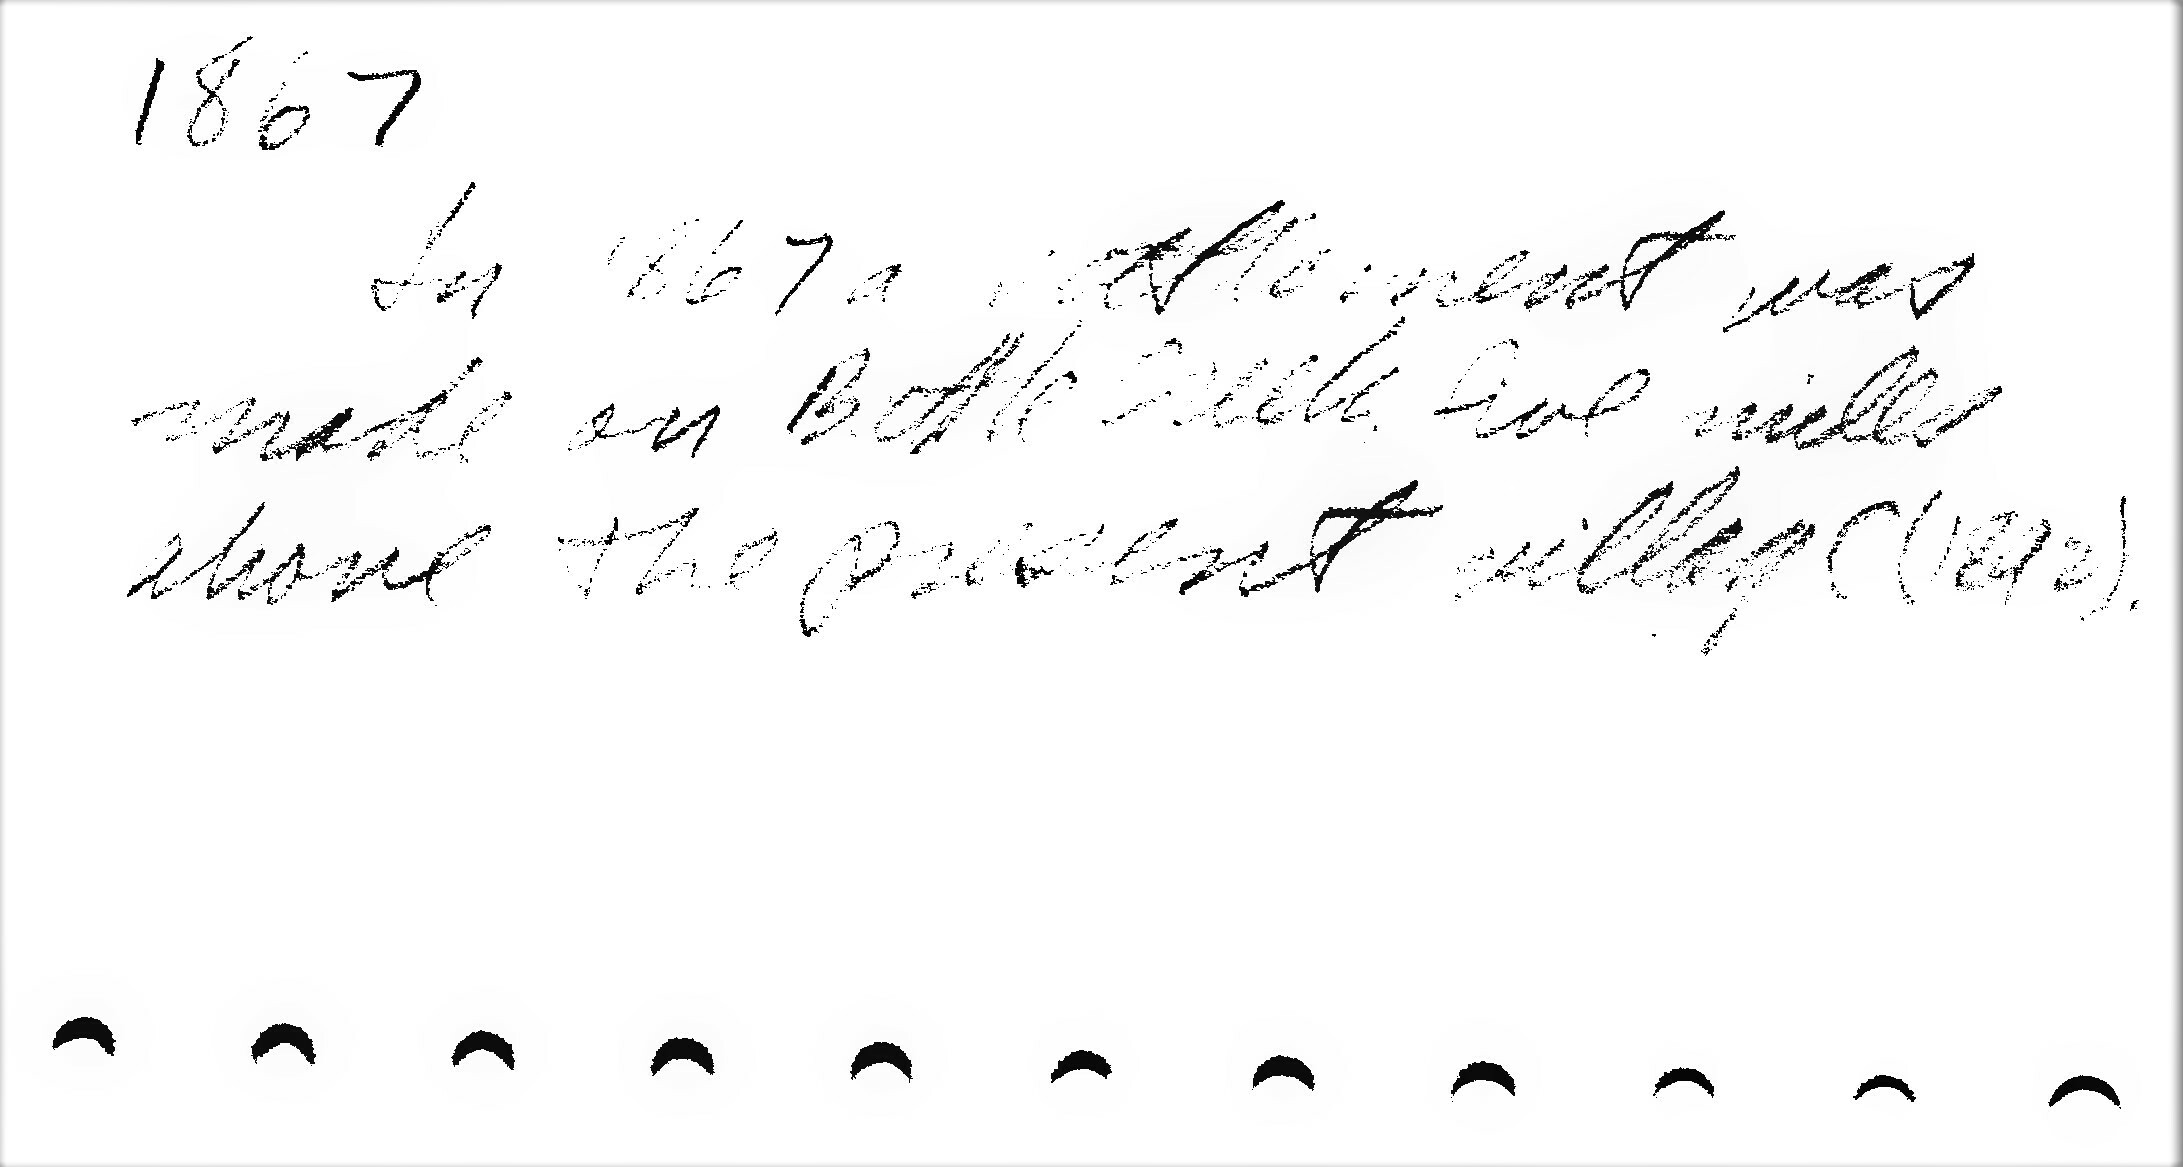 1867
In 1867 a settlement was
made on Battle Creek five miles
above the present village (1892).